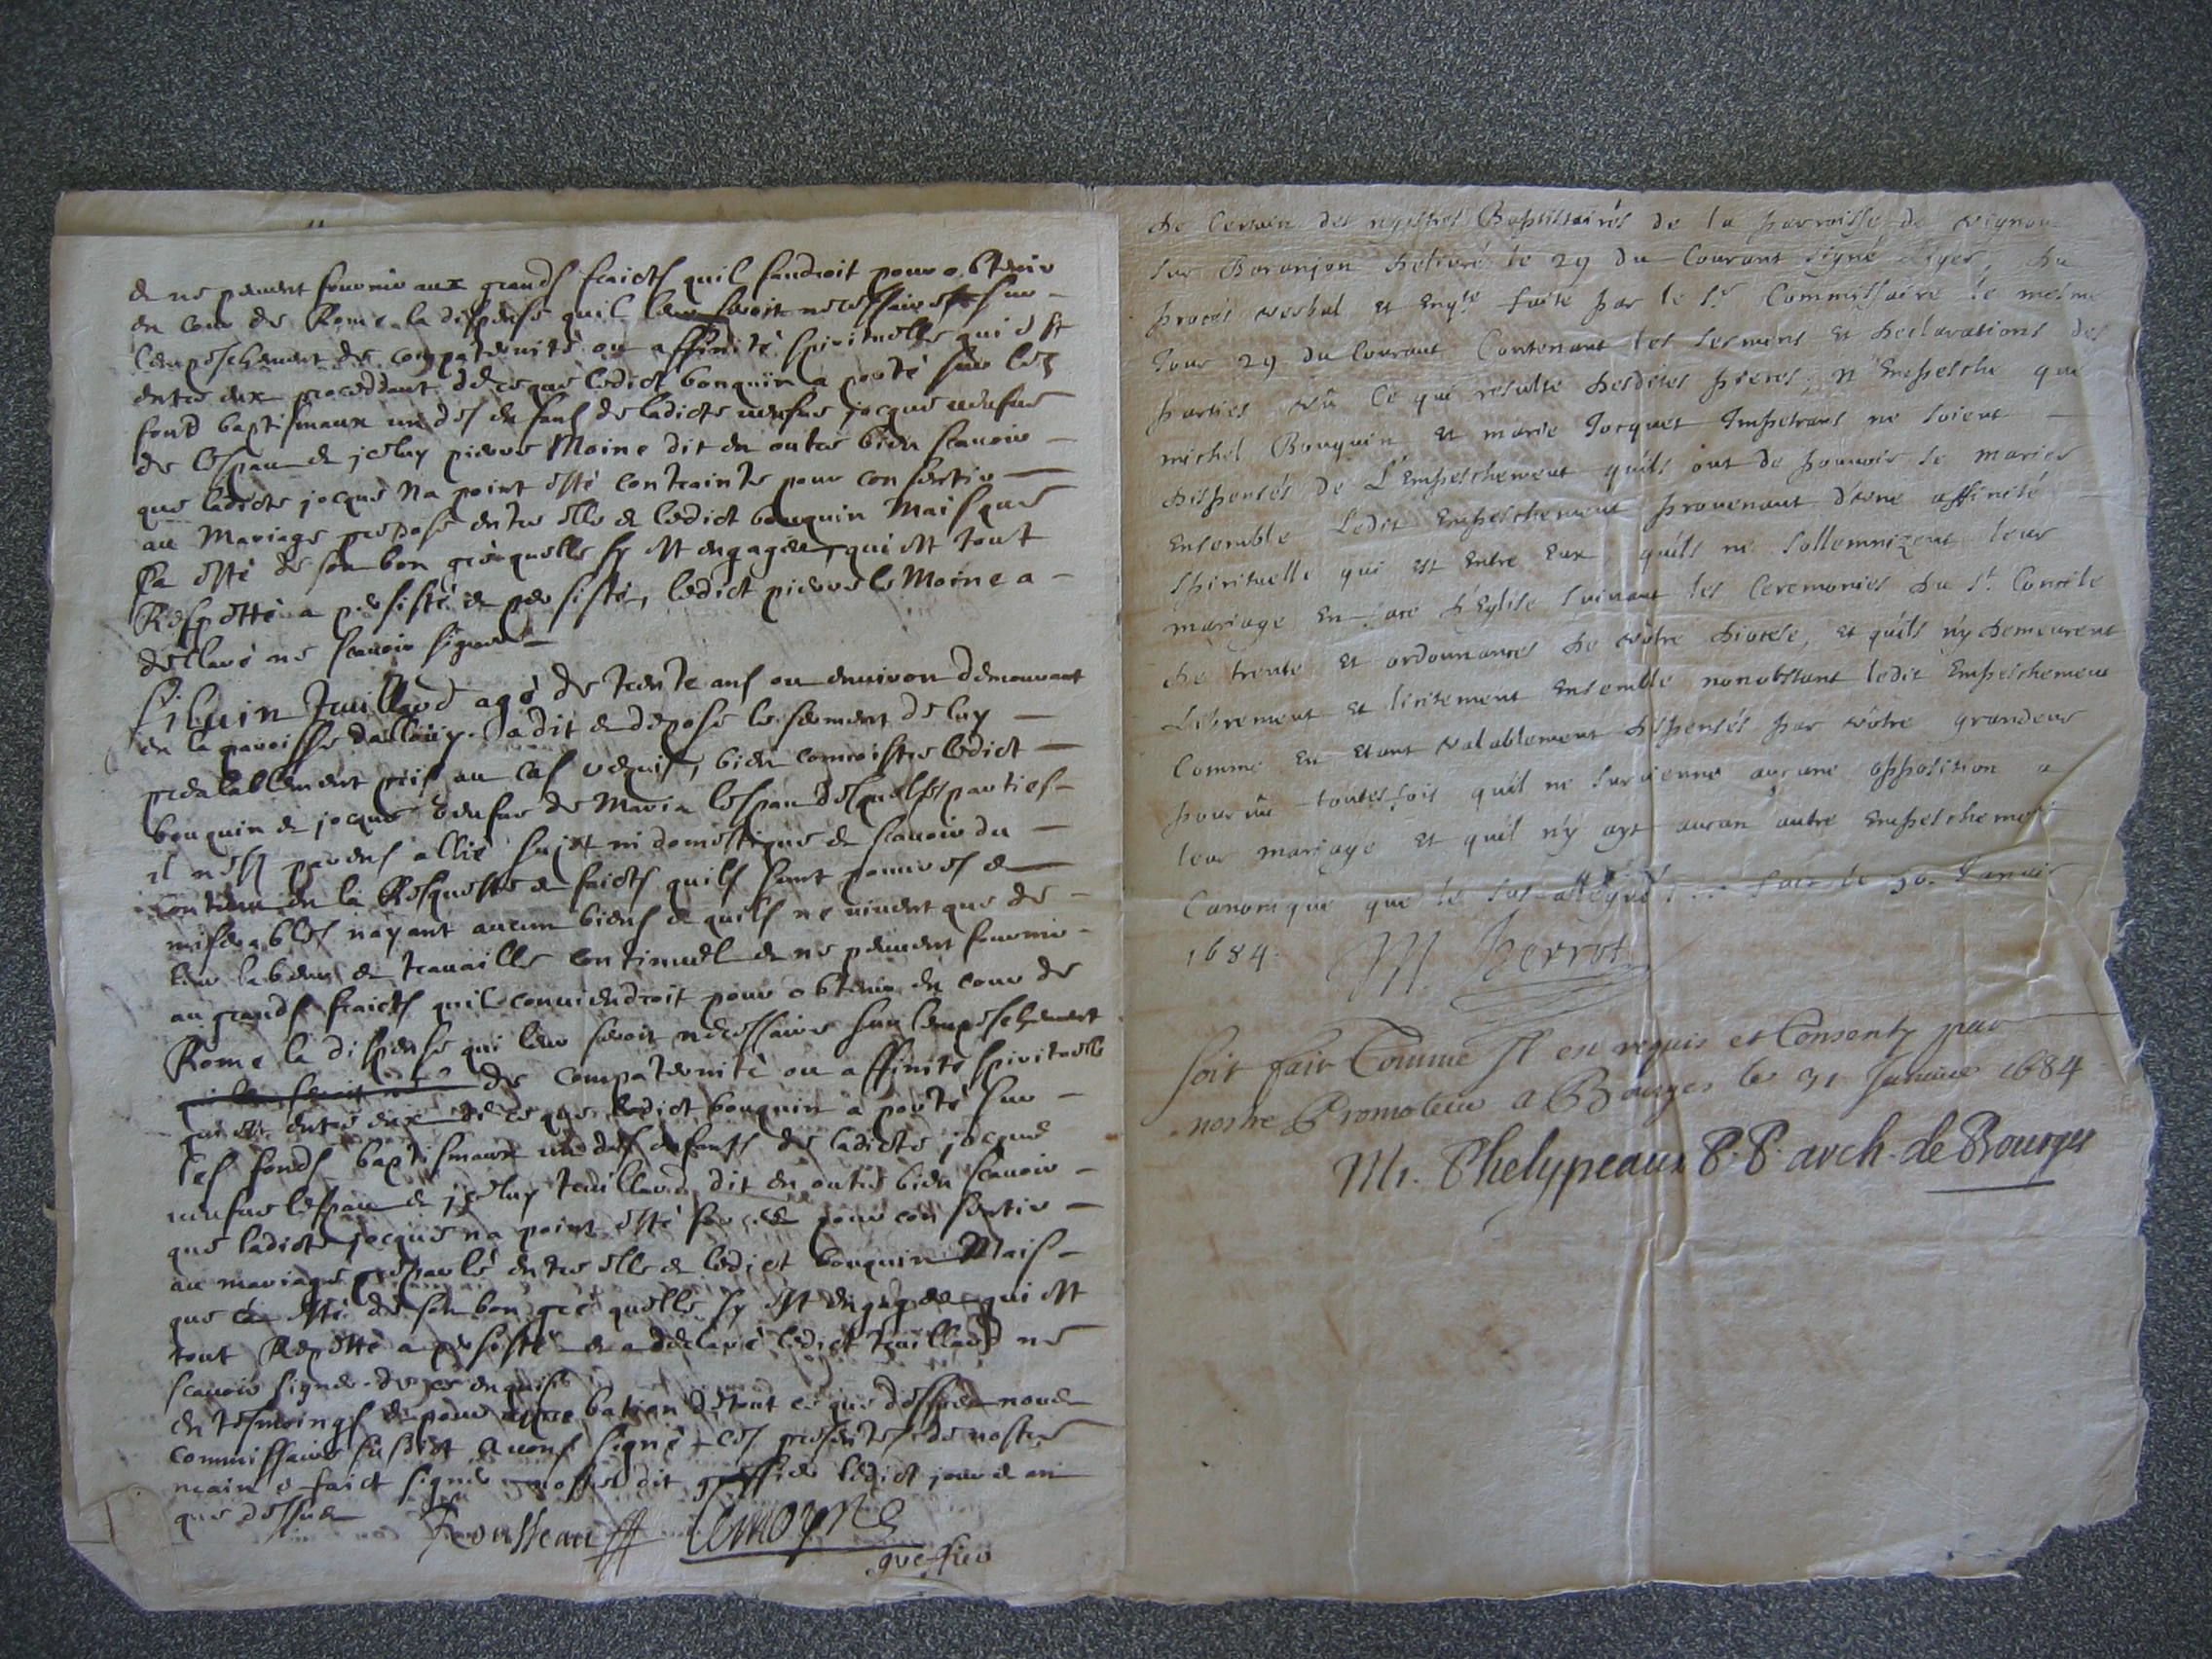 & ne peuvent fournir aux grands fraicts quil faudroit pour obtenir
en cour de Rome la dispense quil leur seroit necessaire sur
lempeschement de compaternité ou affinité spirituelle qui est
entre eux proceddant de ce que ledict bonquin a porté sur les
fond baptismaux un des enfans de ladicte veufue jocque veufue
de lespau & jceluy pierre Moine dit en outre bien scauoir
que ladicte jocque na point esté contrainte pour consentir
au Mariage proposé entre elle & ledict bonquin Mais que
ca esté de son bon gré quelle sy est engagée, qui est tout
Respetté a persisté & persiste, ledict pierre le Moine a
desclaré ne scauoir signer
Siluin Tuillard agé de trente ans ou enuiron demeurant
en la paroisse dallouy. a dit & deposé le serment de luy
prealablement pris au cas requis, bien connoistre ledict
bonquin & jocque veufue de Maria lespau desquelles parties
il nest parens allié sujet ni domestique & scauoir du
contenu en la Resqueste & faicts quils sont pauures &
miserables nayant aucun biens & quils ne viuent que de
leur labeur & trauaille continuel & ne peuuent fournir
au grands fraicts quil conuiendroit pour obtenir en cour de
Rome la dispense qui leur seroit necessaire sur lempeschement
qui leur seroit de compaternité ou affinité spirituelle
qui est entre eux de ce que ledict bonquin a porté sur
les fonds baptismaux un des enfans de ladicte jocque
veufue lespau & jceluy tuillard dit en outre bien scauoir
que ladicte jocque na point esté forcée pour consentir
au mariage proparlé entre elle & ledict bonquin Mais
que ca esté de son bon gré quelle sy est engagée qui est
tout Repetté a persisté & a declaré ledict tuillard ne
scauoir signer de ce enquis
en tesmoings & pour approbation de tout ce que dessus nous
commissaire susdict auons signé ces presentes de nostre
main & faict signer a nostre dit greffier ledict jour & an
que dessus
Rousseau Lemoyne
greffier
de Certain des registres Baptistaires de la parroisse de vignou
sur Baranjon deliuré le 29 du Courant signé Liger, du
procés verbal et enq.te faite par le S.r Commissaire le mesme
Jour 29 du Courant Contenant les sermens et declarations des
parties vû Ce qui resulte desdites pieces, n'Empesche que
michel Bonquin et marie Jocquet Impetrans ne soient
dispensés de L'Empeschement qu'ils ont de pouuoir se marier
Ensemble Ledit Empeschement prouenant d'une affinité
spirituelle qui est entre Eux, qu'ils ne sollemnizent leur
mariage En face d'Eglise suiuant les Ceremonies du S.t Concile
de trente et ordonnances de vôtre diocese, et qu'ils n'y demeurent
Librement et licitement Ensemble nonobstant ledit Empeschement
Comme en etant valablement dispensés par vôtre grandeur
pourvû toutes fois qu'il ne suruienne aucune opposition a
leur mariage et qu'il n'y ayt aucun autre Empeschement
Canonique que le sus-allegué, fait le 30. Januier
1684. M. Perrot
Soit fait Comme Il est requis et Consenty par
nostre Promoteur a Bourges le 31 Januier 1684
M. Phelypeaux P. P. arch. de Bourges